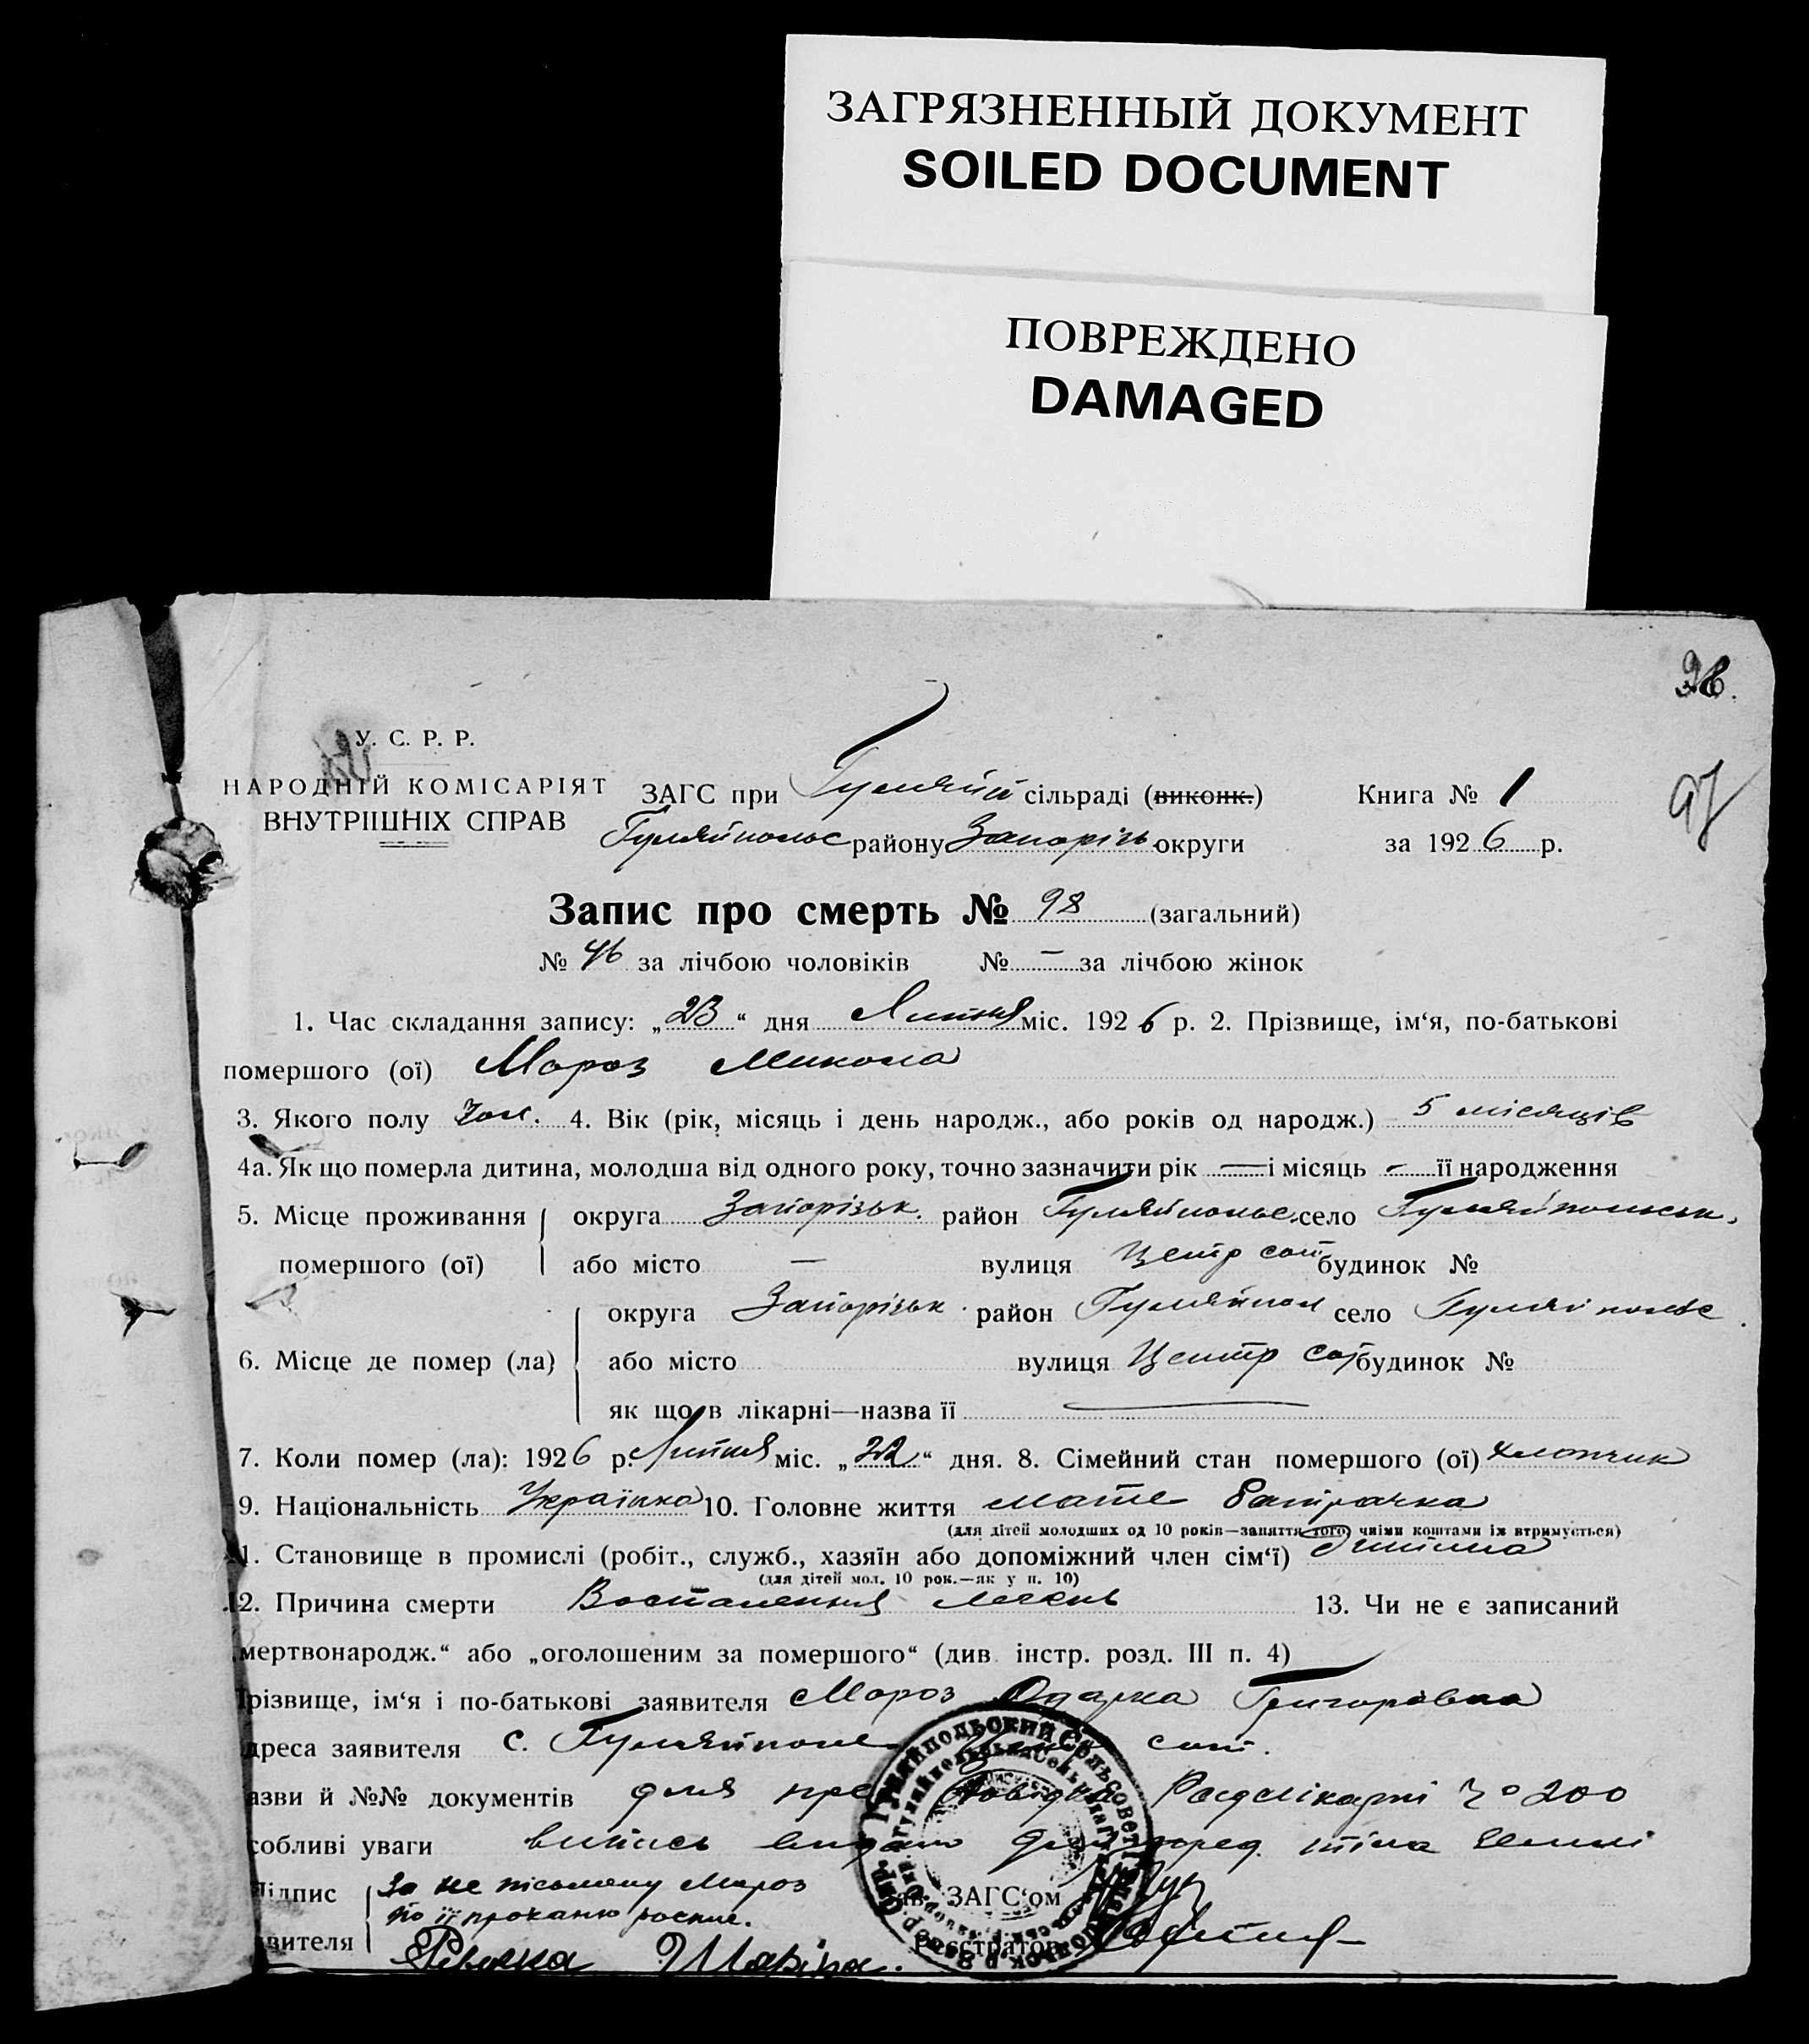 ЗАГРЯЗНЕННЫЙ ДОКУМЕНТ
SOILED DOCUMENT
ПОВРЕЖДЕНО
DAMAGED
У. С. Р. Р.
НАРОДНІЙ КОМІСАРІЯТ
ВНУТРІШНІХ СПРАВ
97
ЗАГС при Гуляйп сільраді (виконк.) Книга № 1
Гуляйпольс району Запорізь округи за 1926 р.
Запис про смерть № 98 (загальний)
№ 46 за лічбою чоловіків № — за лічбою жінок
1. Час складання запису: „23“ дня Липня міс. 1926 р. 2. Прізвище, ім‘я, по-батькові
помершого (ої) Мороз Микола
3. Якого полу чол. 4. Вік (рік, місяць і день народж., або років од народж.) 5 місяців
4а. Як що померла дитина, молодша від одного року, точно зазначити рік — і місяць — її народження
5. Місце проживання округа Запорізьк. район Гуляйпольс. село Гуляйпольськ.
помершого (ої) або місто — вулиця Центр сот будинок №
округа Запорізьк район Гуляйпол село Гуляйпольє
6. Місце де помер (ла) або місто вулиця Центр сот будинок №
як що в лікарні—назва її —
7. Коли помер (ла): 1926 р. Липня міс. „22“ дня. 8. Сімейний стан помершого (ої) хлопчик
9. Національність Українка 10. Головне життя мате батрачка
(для дітей молодших од 10 років—заняття того, чиїми коштами їх втримується)
11. Становище в промислі (робіт., служб., хазяїн або допоміжний член сім‘ї)
(для дітей мол. 10 рок.—як у п. 10)
12. Причина смерти Воспаления легень 13. Чи не є записаний
„мертвонародж.“ або „оголошеним за помершого“ (див. інстр. розд. III п. 4)
Прізвище, ім‘я і по-батькові заявителя Мороз Одарка Григорівна
дреса заявителя с. Гуляйполе Центр сот.
азви й №№ документів для пред довідка Райлікарні № 200
собливі уваги випись видано для перед. тіла землі
Підпис За не письмену Мороз
по її проханю роспис.
ЗАГС‘ом
явителя Марія.
Реєстратор